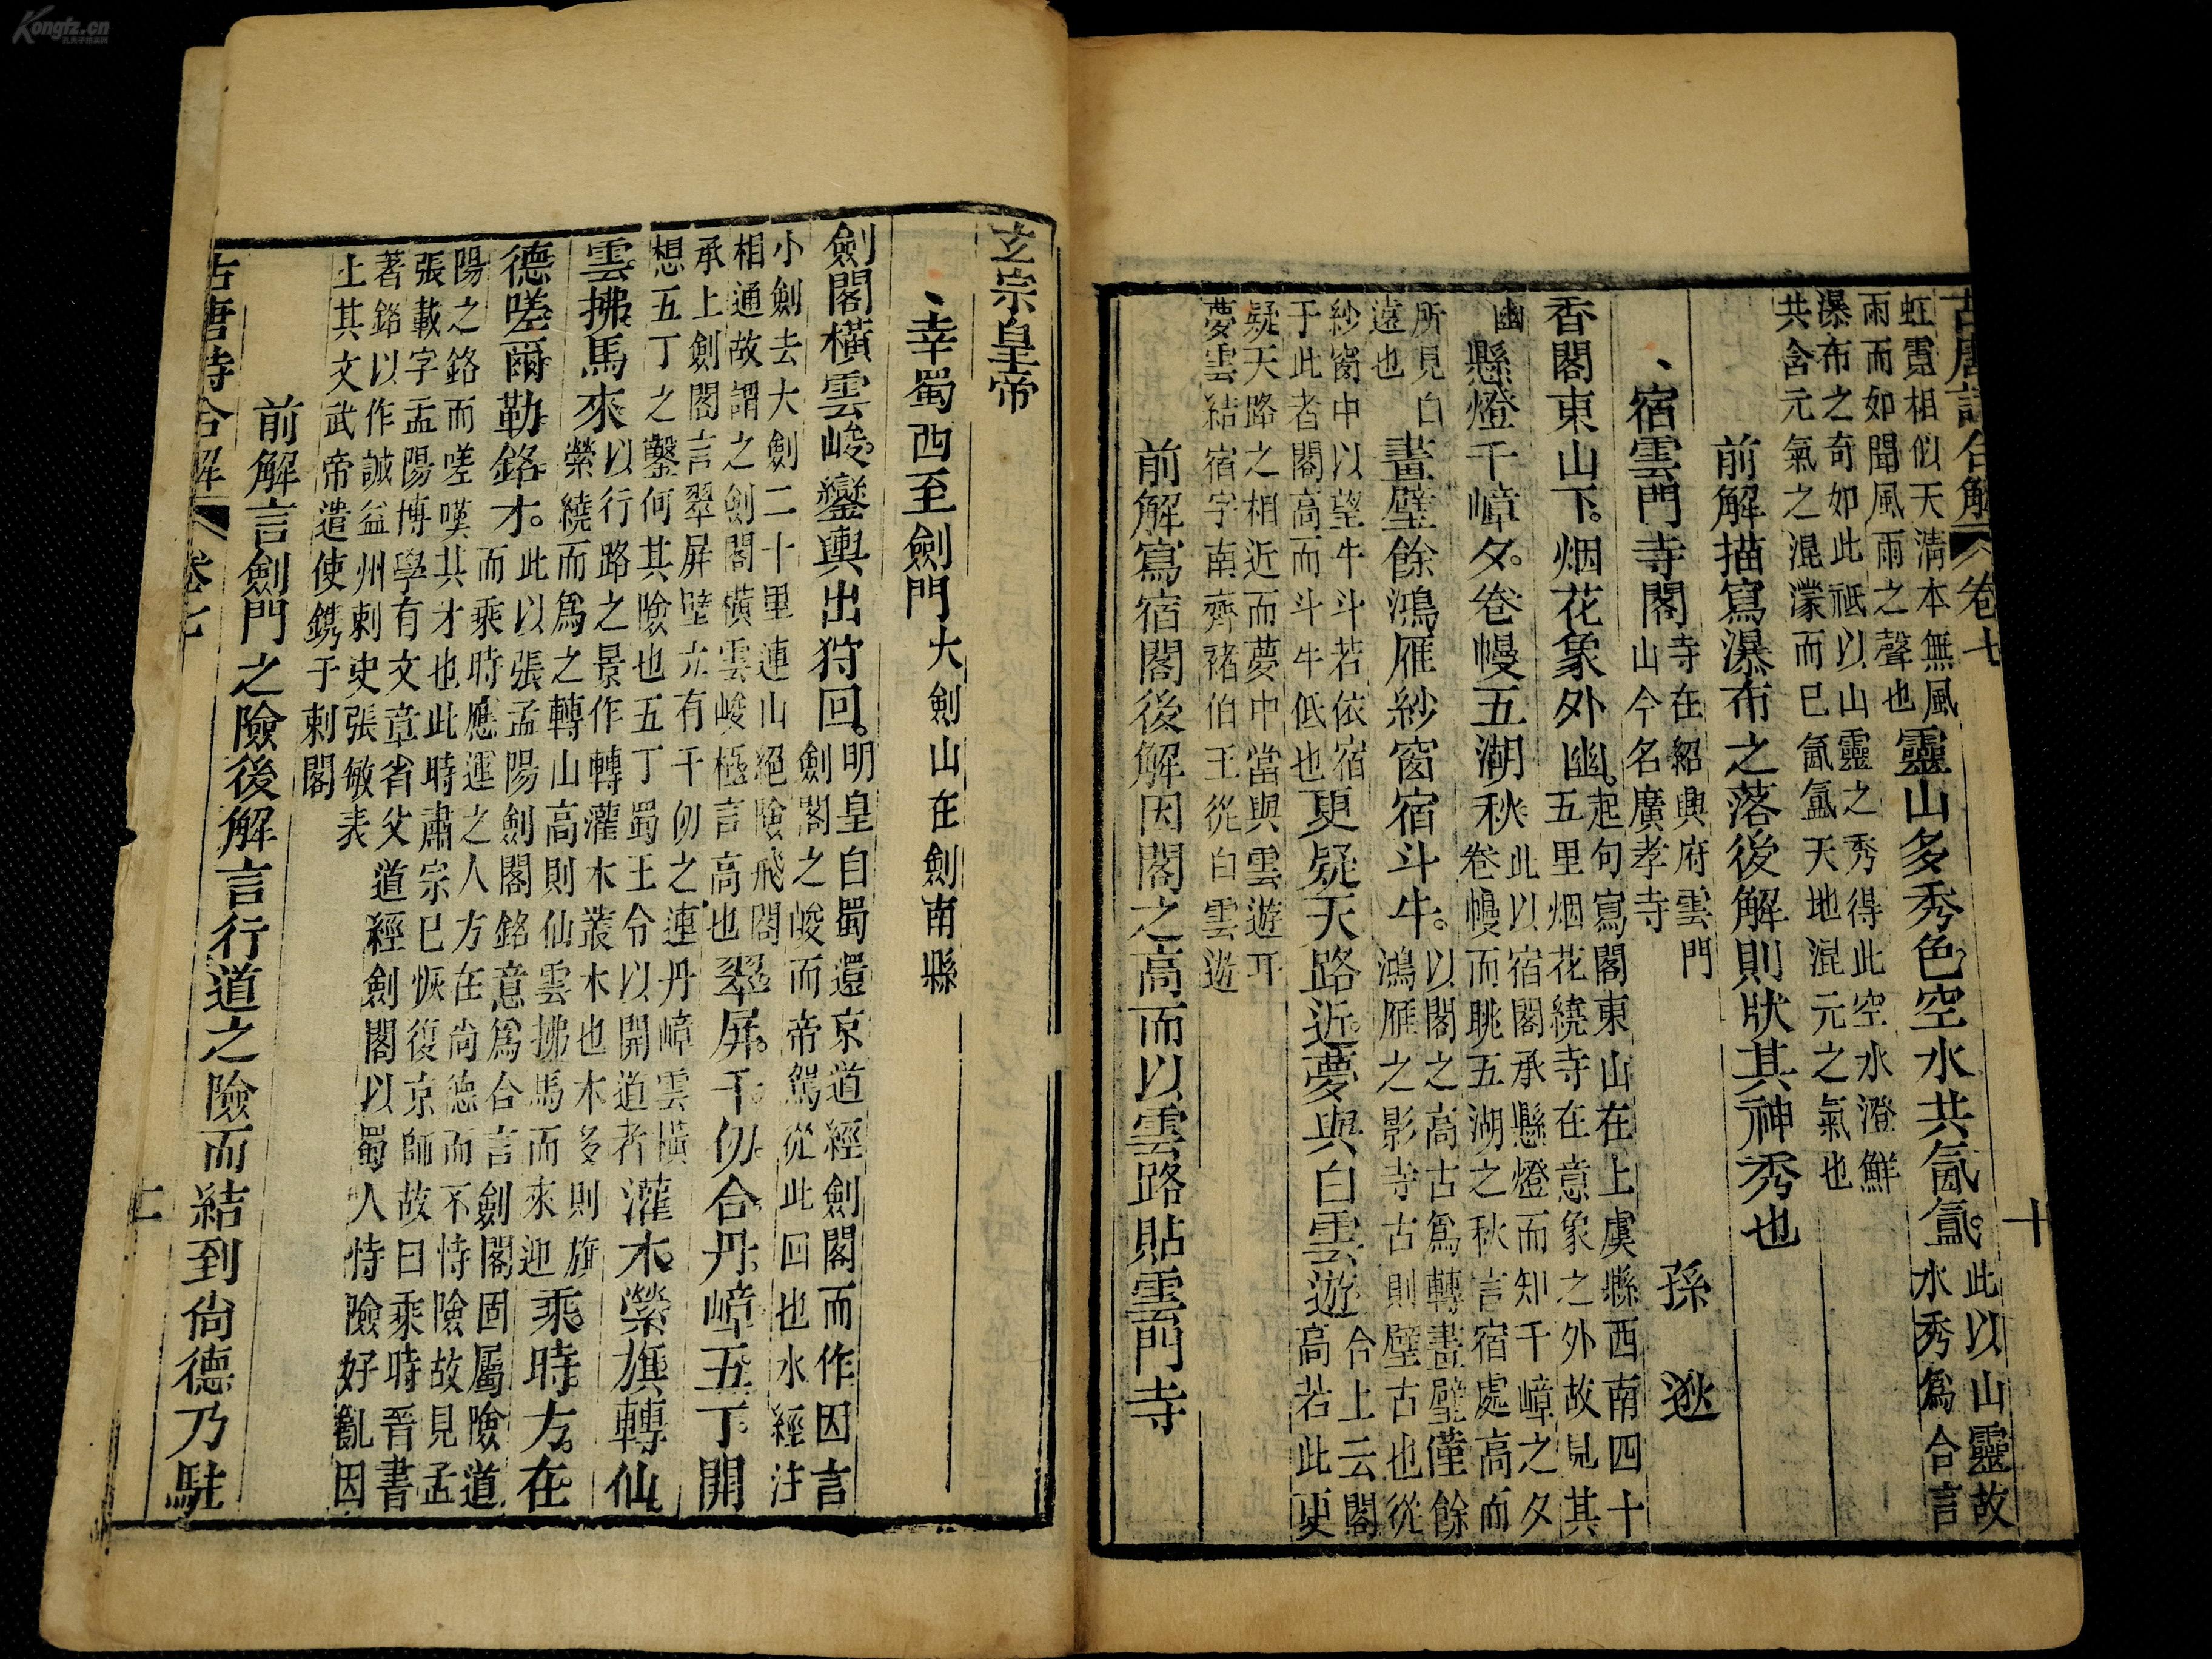 古唐詩合解 卷七 十
虹霓相似天清本無風
雨而如聞風雨之聲也
靈山多秀色空水共氤氳
此以山靈故
水秀為合言
瀑布之奇如此祇以山靈之秀得此空水澄鮮
共含元氣之混濛而已氤氳天地混元之氣也
前解描寫瀑布之落後解則狀其神秀也
孫逖
宿雲門寺閣
寺在紹興府雲門
山今名廣孝寺
香閣東山下。烟花象外幽。
起句寫閣東山在上虞縣西南四十
五里烟花繞寺在意象之外故見其
幽
懸燈千嶂夕。卷幔五湖秋
此以宿閣承懸燈而知千嶂之夕
卷幔而眺五湖之秋言宿處高而
所見自
遠也
畫壁餘鴻雁紗窗宿斗牛。
以閣之高古為轉畫壁僅餘
鴻雁之影寺古則壁古也從
紗窗中以望牛斗若依宿
于此者閣高而斗牛低也
更疑天路近夢與白雲遊
合上云閣
高若此更
疑天路之相近而夢中當與雲遊耳
夢雲結宿字南齊褚伯玉從白雲遊
前解寫宿閣後解因閣之高而以雲路貼雲門寺
玄宗皇帝
幸蜀西至劍門
大劍山在劍南縣
劍閣橫雲峻鑾輿出狩回。
明皇自蜀還京道經劍閣而作因言
劍閣之峻而帝駕從此回也水經注
小劍去大劍二十里連山絕險飛閣
相通故謂之劍閣橫雲峻極言高也
翠屏千仞合丹嶂五丁開
承上劍閣言翠屏壁立有千仞之連丹嶂雲橫
想五丁之鑿何其險也五丁蜀王令以開道者
灌木縈旗轉仙
雲拂馬來
以行路之景作轉灌木叢木也木多則旗
縈繞而為之轉山高則仙雲拂馬而來迎
乘時方在
德嗟爾勒銘才。
此以張孟陽劍閣銘意為合言劍閣固屬險道
而乘時應運之人方在尚德而不恃險故見孟
陽之銘而嗟嘆其才也此時肅宗已恢復京師故曰乘時晉書
張載字孟陽博學有文章省父道經劍閣以蜀人恃險好亂因
著銘以作誡益州刺史張敏表
上其文武帝遣使鐫于劍閣
前解言劍門之險後解言行道之險而結到尚德乃駐
古唐詩合解 卷七
Kongfz.cn